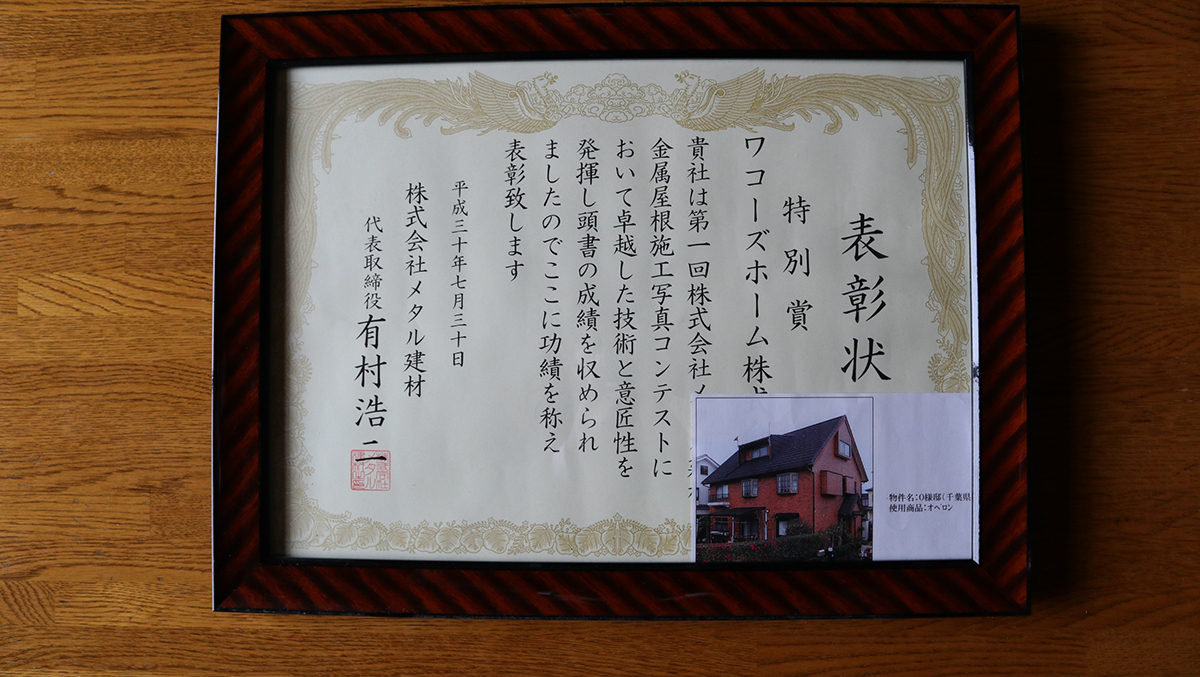 表彰状
特別賞
ワコーズホーム株式
貴社は第一回株式会社メ
金属屋根施工写真コンテストに
おいて卓越した技術と意匠性を
発揮し頭書の成績を収められ
ましたのでここに功績を称え
表彰致します
平成三十年七月三十日
株式会社メタル建材
代表取締役 有村浩二
物件名:O様邸(千葉県
使用商品:オベロン